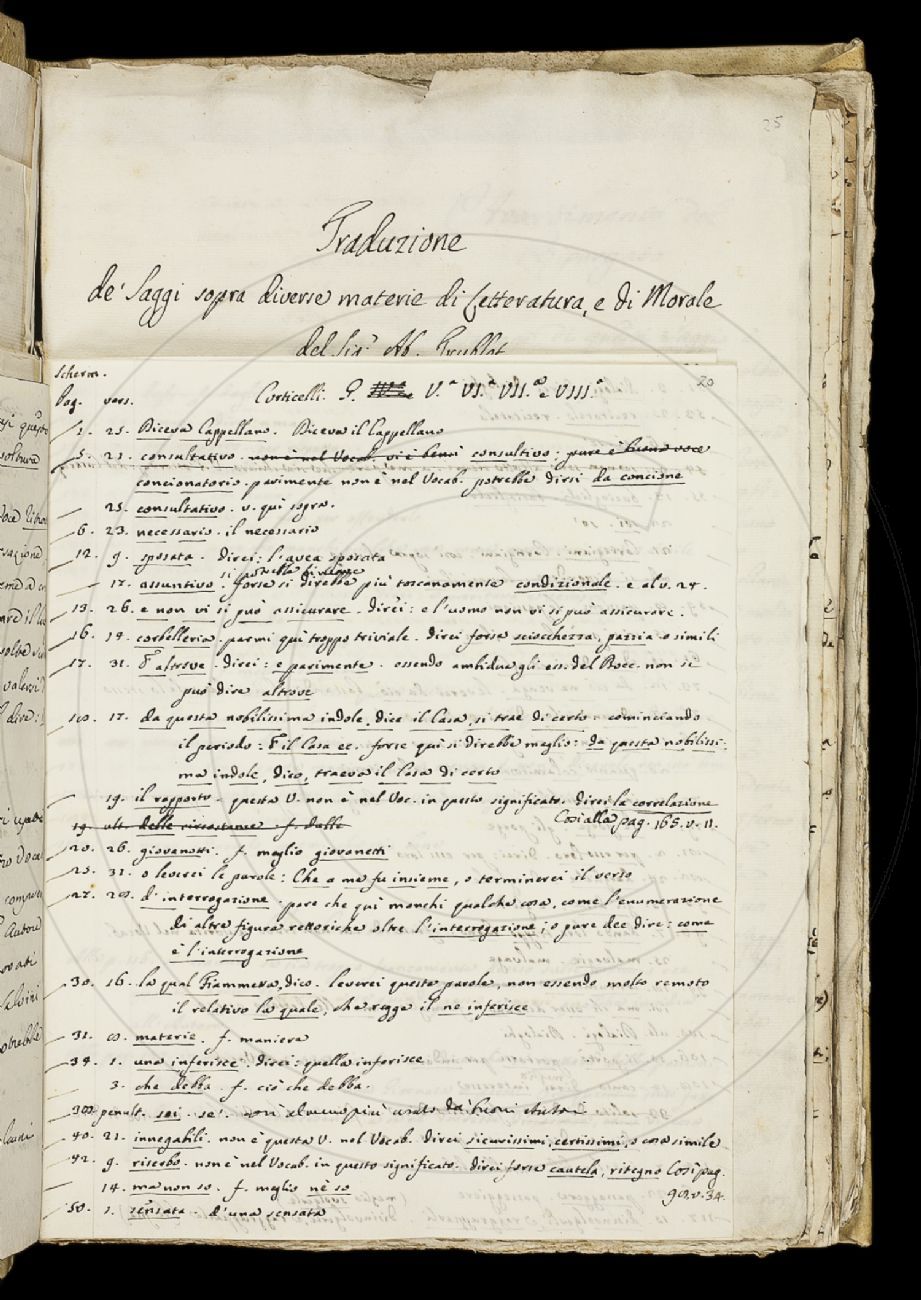 25
Traduzione
de' Saggi sopra diverse materie di Letteratura, e di Morale
del Sig.r Ab. Trublet
20
Scherm.
Pag. vers. Corticelli. P. V.a VI.a VII.a e VIII.a
1. 25. Diceva Cappellano. Diceva il Cappellano
5. 23. consultativo. non è nel Vocab. vi è bensì consultivo; pure è buona voce
concionatorio. parimente non è nel Vocab. potrebbe dirsi da concione
25. consultativo. v. qui sopra.
6. 23. necessario. il necessario
12. 9. sposata. direi: l'avea sposata
si potrebbe
17. assuntivo. forse si direbbe più toscanamente condizionale. e al v. 27.
13. 26. e non vi si può assicurare. direi: e l'uomo non vi si può assicurare.
16. 14. corbelleria. parmi quì troppo triviale. direi forse sciocchezza, pazzia o simili
17. 31. E altrove. direi: e parimente. essendo ambidue gli es. del Bocc. non si
può dire altrove
18. 17. da questa nobilissima indole, dice il Casa, si trae di certo. cominciando
il periodo: E il Casa ec. forse quì si direbbe meglio: da questa nobilissi-
ma indole, dico, traeva il Casa di certo
19. il rapporto. questa V. non è nel Voc. in questo significato. direi la correlazione
Così alla pag. 165. v. 11.
19. ult. delle circostanze. f. dalle
20. 26. giovanotti. f. meglio giovanetti
25. 31. o leverei le parole: Che a me fu insieme, o terminerei il verso
27. 20. d'interrogazione. pare che quì manchi qualche cosa, come l'enumerazione
di altre figure rettoriche oltre l'interrogazione; o pure dee dire: come
è l'interrogazione
30. 16. la qual Fiammera, dico. leverei queste parole, non essendo molto remoto
il relativo la quale, che regge il ne inferisce
31. materie. f. maniera
34. 1. una inferisce. direi: quella inferisce
3. che debba. f. ciò che debba.
penult. sei. se'. più usato da' buoni
40. 21. innegabili. non è questa V. nel Vocab. direi sicurissimi, certissimi, o cosa simile
42. 9. riserbo. non è nel Vocab. in questo significato. direi forse cautela, ritegno Così pag.
90. v. 34.
14. ma non so. f. meglio nè so
50. 1. sensata. d'una sensata